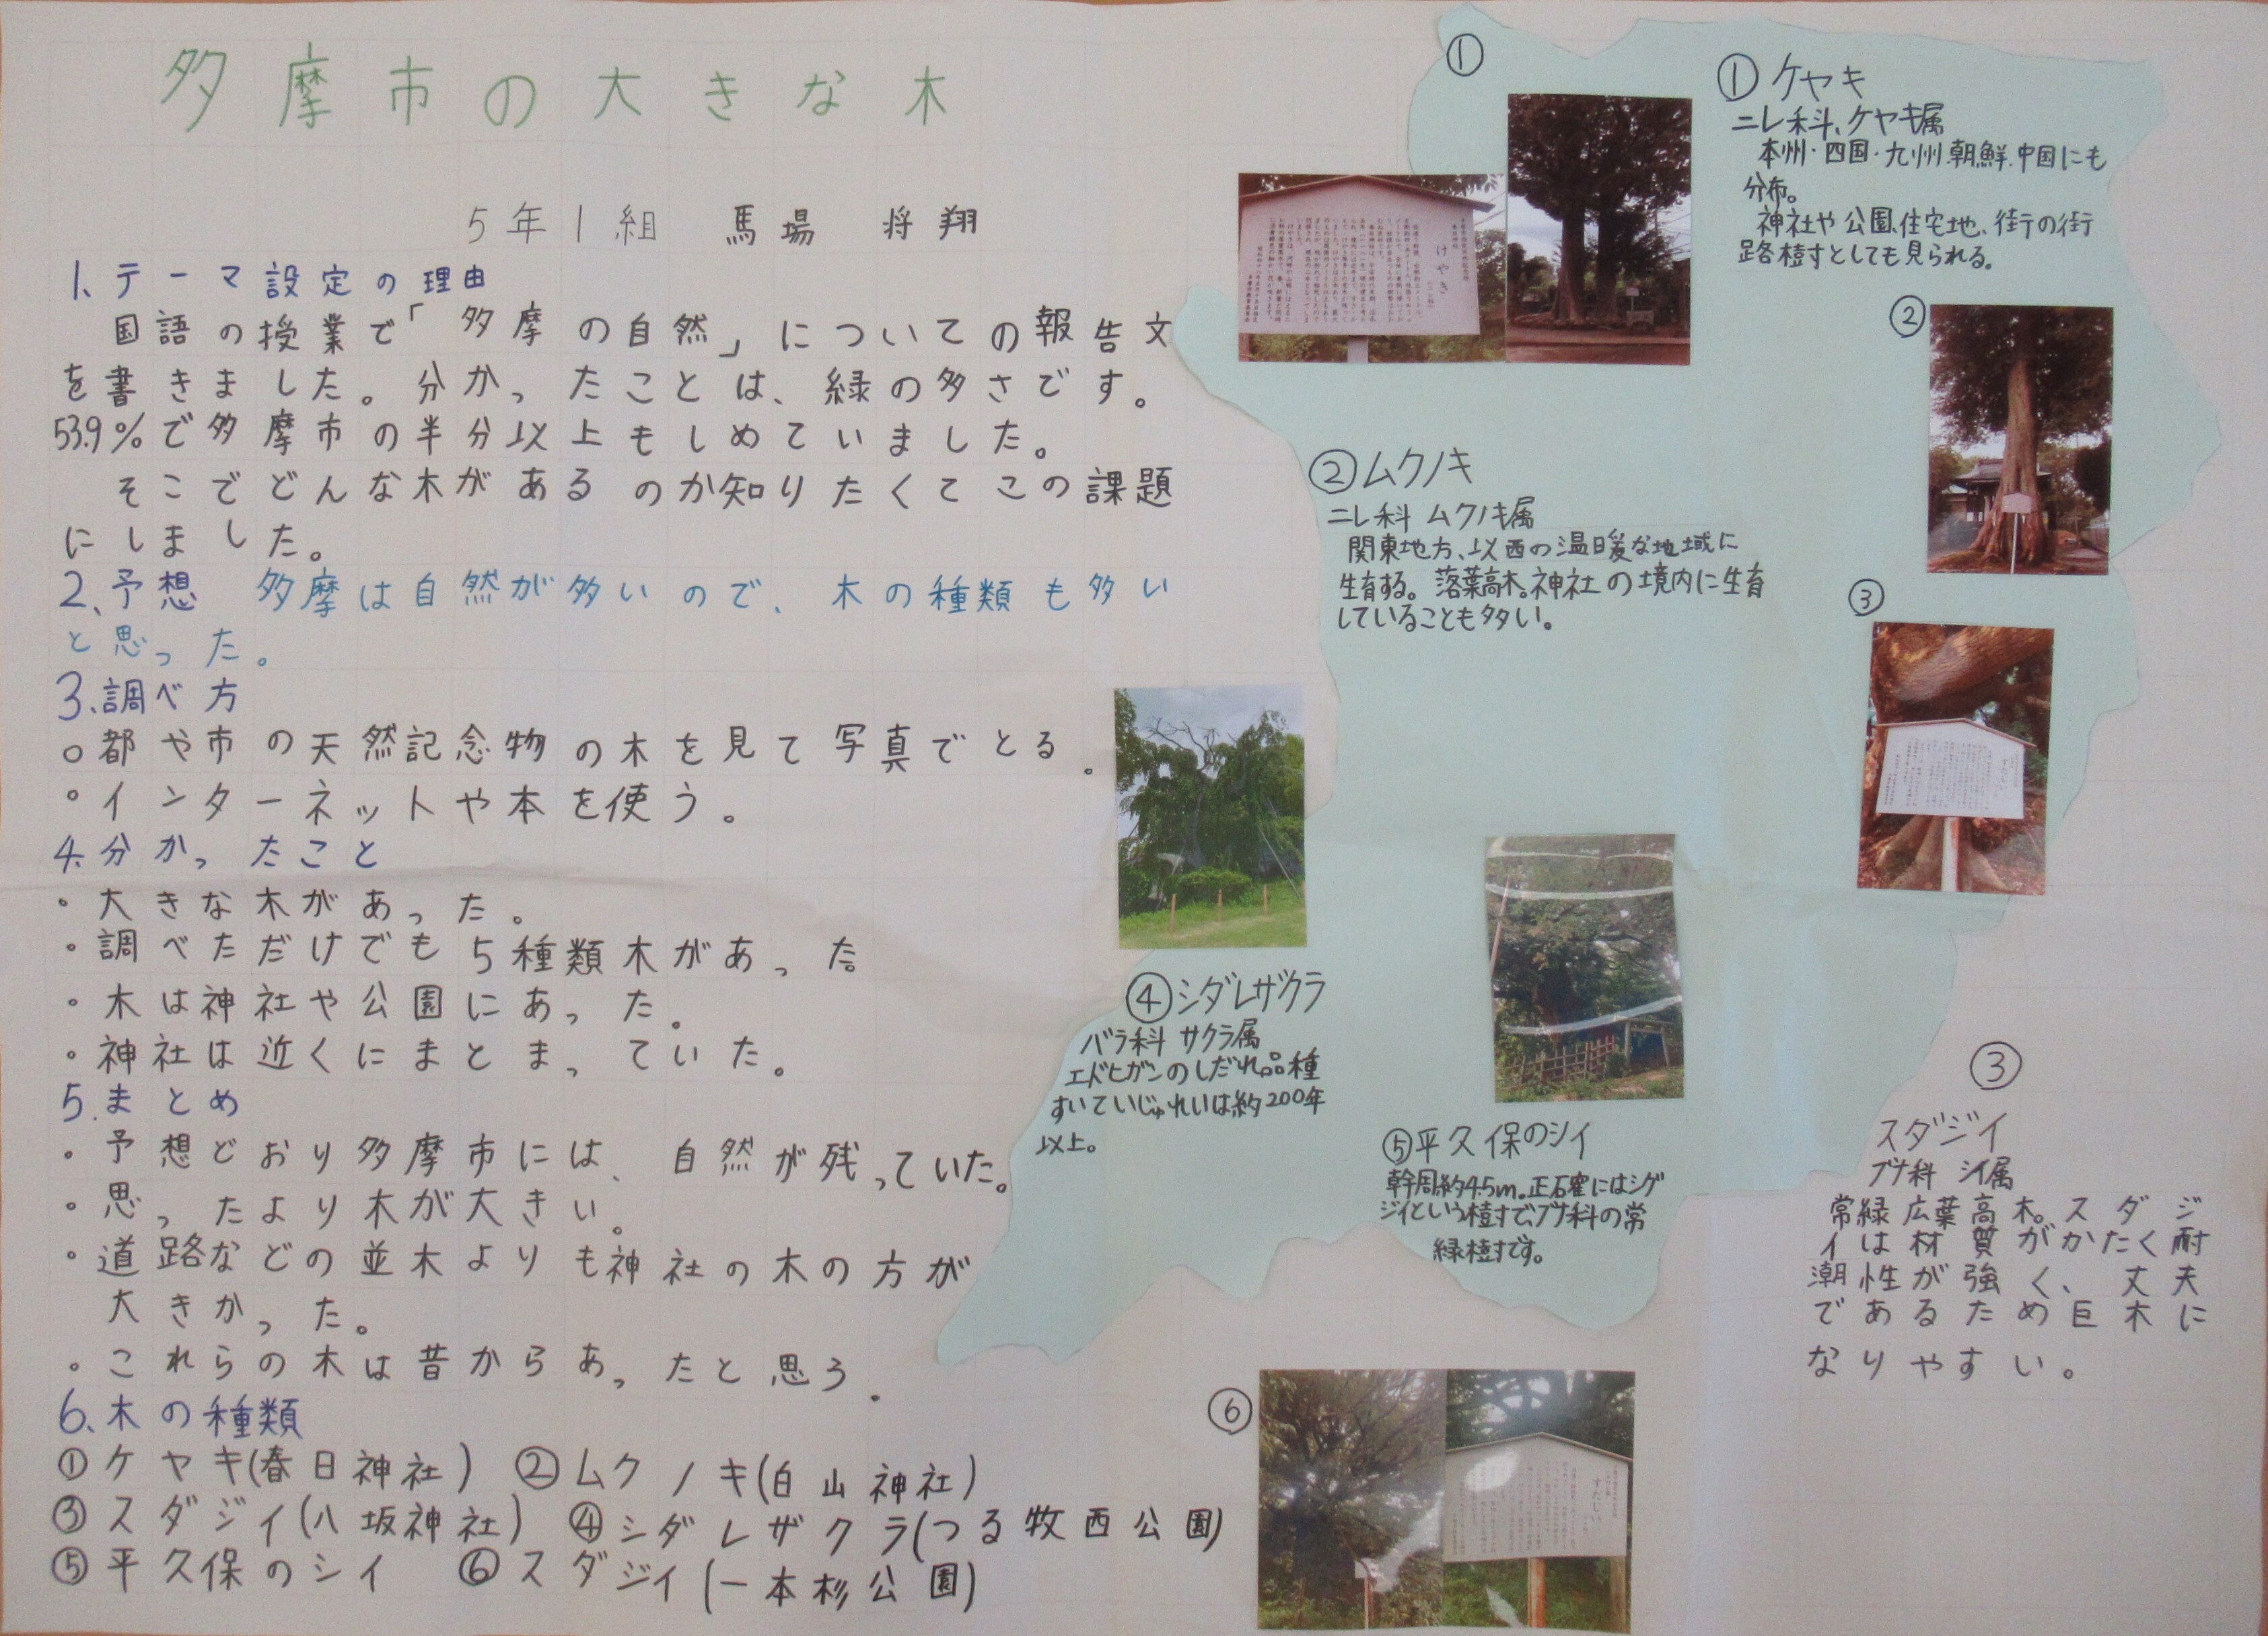 多摩市の大きな木
5年1組 馬場 将翔
1、テーマ設定の理由
国語の授業で「多摩の自然」についての報告文
を書きました。分かったことは、緑の多さです。
53.9%で多摩市の半分以上もしめていました。
そこでどんな木があるのか知りたくてこの課題
にしました。
2、予想 多摩は自然が多いので、木の種類も多い
と思った。
3、調べ方
○都や市の天然記念物の木を見て写真でとる。
○インターネットや本を使う。
4、分かったこと
・大きな木があった。
・調べただけでも5種類木があった。
・木は神社や公園にあった。
・神社は近くにまとまっていた。
5、まとめ
・予想どおり多摩市には、自然が残っていた。
・思ったより木が大きい。
・道路などの並木よりも神社の木の方が
大きかった。
・これらの木は昔からあったと思う。
6、木の種類
①ケヤキ(春日神社) ②ムクノキ(白山神社)
③スダジイ(八坂神社) ④シダレザクラ(つる牧西公園)
⑤平久保のシイ ⑥スダジイ(一本杉公園)
①
けやき
①ケヤキ
ニレ科、ケヤキ属
本州・四国・九州、朝鮮、中国にも
分布。
神社や公園、住宅地、街行の街
路樹としても見られる。
②
②ムクノキ
ニレ科 ムクノキ属
関東地方、以西の温暖な地域に
生育する。落葉高木。神社の境内に生育
していることも多い。
③
④シダレザクラ
バラ科 サクラ属
エドヒガンのしだれ品種
すいていじゅれいは約200年
以上。
⑤平久保のシイ
幹周約4.5m。正確にはシダ
ジイという樹で、ブナ科の常
緑樹です。
③
スダジイ
ブナ科 シイ属
常緑広葉高木。スダジ
イは材質がかたく耐
潮性が強く、丈夫
であるため巨木に
なりやすい。
⑥
すだじい